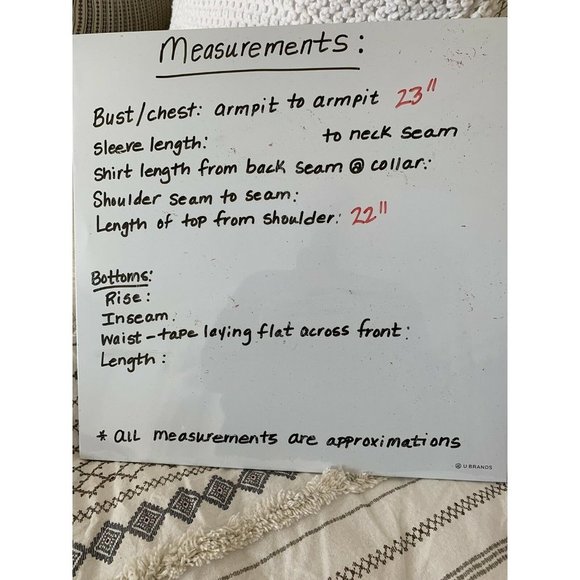 Measurements:
Bust/chest: armpit to armpit 23"
Sleeve length: to neck seam
Shirt length from back seam @ collar:
Shoulder seam to seam:
Length of top from shoulder: 22"
Bottoms:
Rise:
Inseam.
Waist-tape laying flat across front:
Length:
* all measurements are approximations
U BRANDS